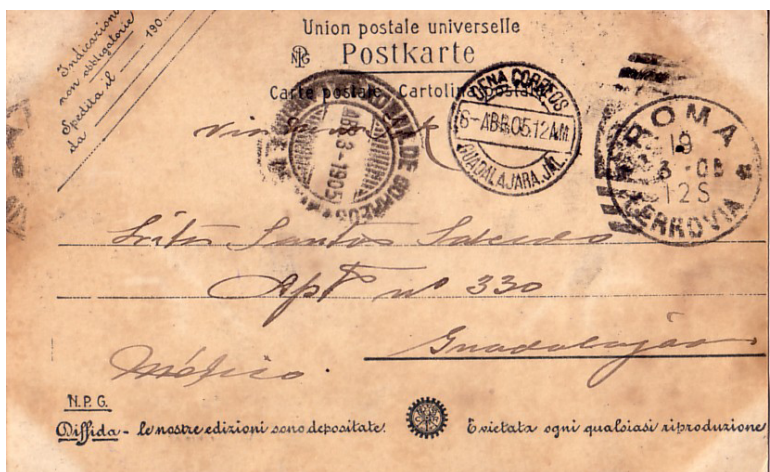 Indicazioni
non obbligatorie
Spedita il — 190
da
Union postale universelle
NPG Postkarte
Carte postale Cartolina postale
DE CORREOS
ABR 3-1905
OENA CORREOS
6-ABR.05.12AM
GUADALAJARA.JAL.
ROMA
19
3-05
12S
FERROVIA
Santos
Apt nº 330
Guadalajara
México
N.P.G.
Diffida - le nostre edizioni sono depositate. È vietata ogni qualsiasi riproduzione